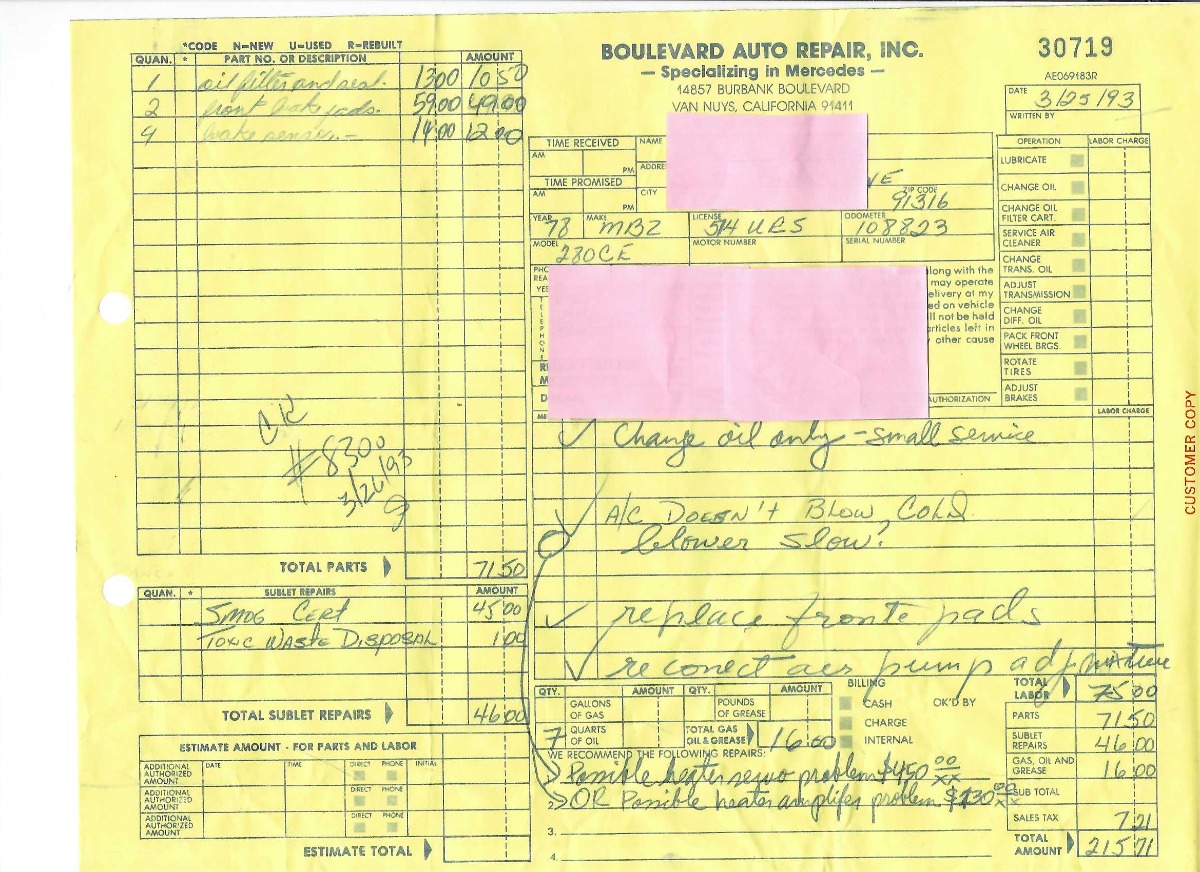 *CODE N=NEW U=USED R=REBUILT
QUAN. * PART NO. OR DESCRIPTION AMOUNT
1 oil filter and seal. 1300 1050
2 front brake pads. 5900 4900
4 brake sensor.- 1400 1200
CK
#830
3/26/93
TOTAL PARTS 7150
QUAN. * SUBLET REPAIRS AMOUNT
SMOG CERT 4500
TOXIC WASTE DISPOSAL 100
TOTAL SUBLET REPAIRS 4600
ESTIMATE AMOUNT - FOR PARTS AND LABOR
ADDITIONAL AUTHORIZED AMOUNT DATE TIME DIRECT PHONE INITIAL
ADDITIONAL AUTHORIZED AMOUNT DIRECT PHONE
ADDITIONAL AUTHORIZED AMOUNT DIRECT PHONE
ESTIMATE TOTAL
BOULEVARD AUTO REPAIR, INC.
— Specializing in Mercedes —
14857 BURBANK BOULEVARD
VAN NUYS, CALIFORNIA 91411
30719
AE069183R
DATE 3/25/93
WRITTEN BY
TIME RECEIVED NAME
AM PM ADDRE VE
TIME PROMISED CITY ZIP CODE
AM PM 91316
YEAR 78 MAKE MBZ LICENSE 514 URS ODOMETER 108823
MODEL 280CE MOTOR NUMBER SERIAL NUMBER
PHO
REA
YES
TELEPHONE
along with the
may operate
elivery at my
ed on vehicle
ll not be held
articles left in
other cause
AUTHORIZATION
OPERATION LABOR CHARGE
LUBRICATE
CHANGE OIL
CHANGE OIL FILTER CART.
SERVICE AIR CLEANER
CHANGE TRANS. OIL
ADJUST TRANSMISSION
CHANGE DIFF. OIL
PACK FRONT WHEEL BRGS.
ROTATE TIRES
ADJUST BRAKES
LABOR CHARGE
✓ Change oil only - small service
✓ A/C DOESN'T BLOW COLD.
blower slow?
✓ replace fronte pads
✓ reconect air pump adj
QTY. AMOUNT QTY. AMOUNT
GALLONS OF GAS POUNDS OF GREASE
7 QUARTS OF OIL TOTAL GAS OIL & GREASE 16.00
BILLING
CASH OK'D BY
CHARGE
INTERNAL
WE RECOMMEND THE FOLLOWING REPAIRS:
Possible heater servo problem $450 00/xx
2. OR Possible heater amplifer problem $230 00/xx
3.
4.
TOTAL LABOR 7500
PARTS 7150
SUBLET REPAIRS 4600
GAS, OIL AND GREASE 1600
SUB TOTAL
SALES TAX 721
TOTAL AMOUNT 21571
CUSTOMER COPY